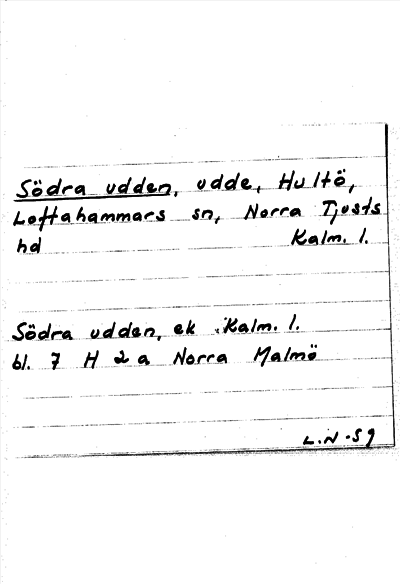 Södra udden, udde, Hultö,
Loftahammars sn, Norra Tjusts
hd Kalm. l.
Södra udden, ek Kalm. l.
bl. 7 H 2 a Norra Malmö
L.N -59